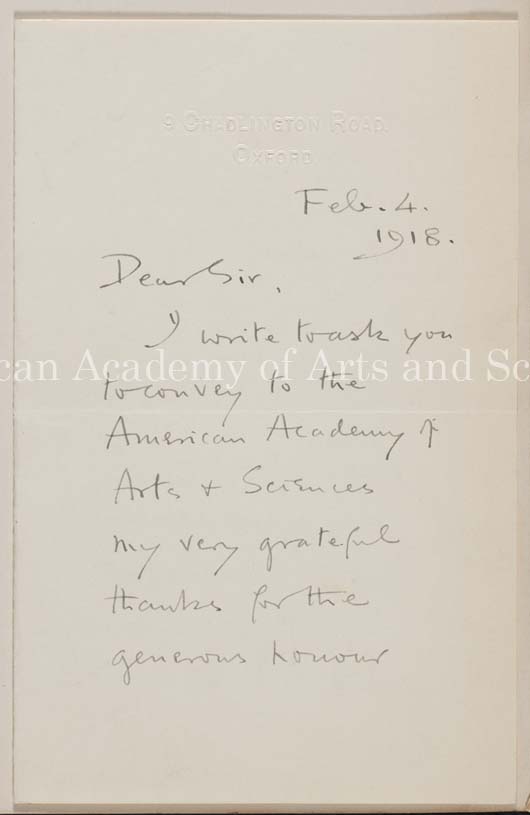 9 CHADLINGTON ROAD.
OXFORD
Feb. 4.
1918.
Dear Sir,
I write to ask you
can Academy of Arts and Sc
to convey to the
American Academy of
Arts + Sciences
my very grateful
thanks for the
generous honour